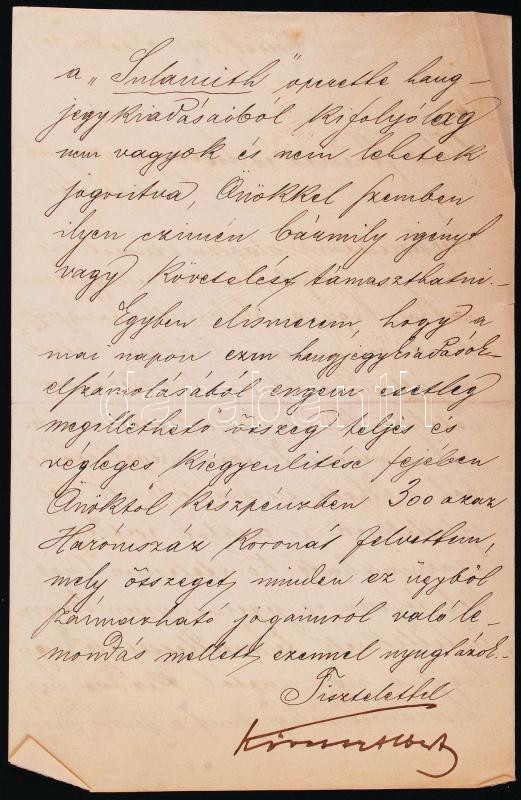 a „Sulamith” operette hang-
jegykiadásaiból kifolyólag
nem vagyok és nem lehetek
jogosítva, Önökkel szemben
ilyen czimén bármily igényt
vagy követelést támaszthatni.-
Egyben elismerem, hogy a
mai napon ezen hangjegykiadások
elszámolásából engem esetleg
megillethető összeg teljes és
végleges kiegyenlitése fejében
Önöktől készpénzben 300 azaz
Háromszáz koronát felvettem,
mely összeget, minden ez ügyből
származható jogaimról való le-
mondás mellett ezennel nyugtázok.-
Tisztelettel
darabanth